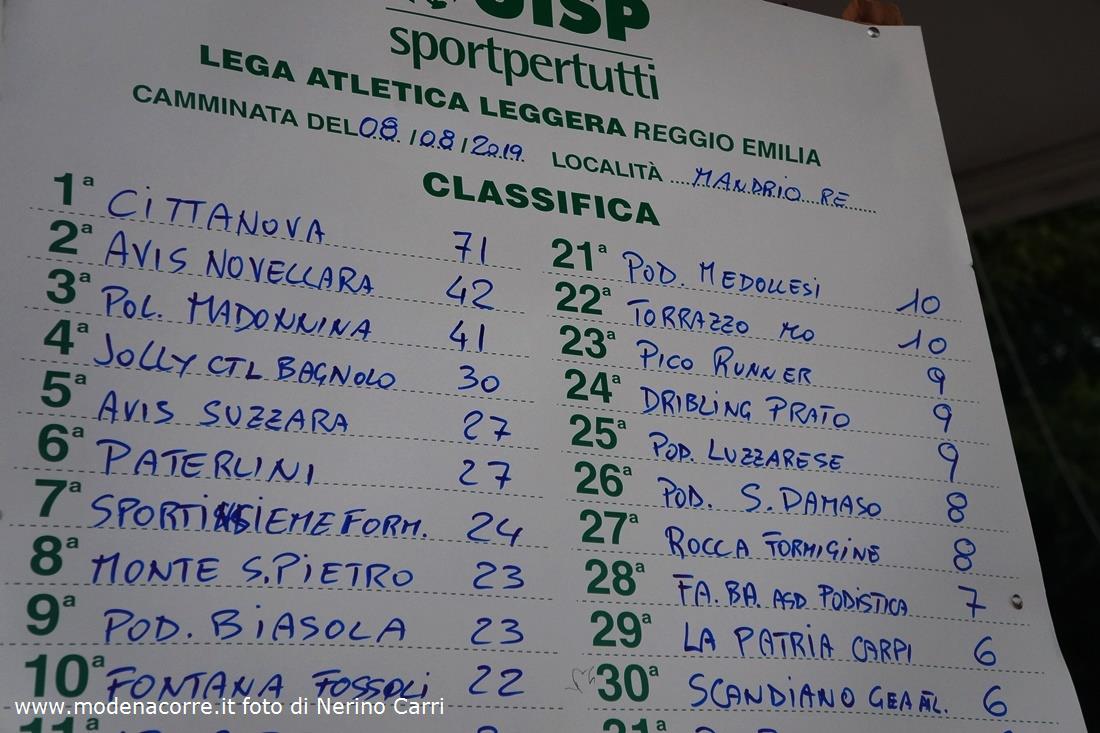 UISP
sportpertutti
LEGA ATLETICA LEGGERA REGGIO EMILIA
CAMMINATA DEL 08 / 08 / 2019 LOCALITÀ ....MANDRIO....RE......
CLASSIFICA
1ª CITTANOVA 71
2ª AVIS NOVELLARA 42
3ª POL. MADONNINA 41
4ª JOLLY CTL BAGNOLO 30
5ª AVIS SUZZARA 27
6ª PATERLINI 27
7ª SPORTINSIEME FORM. 24
8ª MONTE S. PIETRO 23
9ª POD. BIASOLA 23
10ª FONTANA FOSSOLI 22
11ª
21ª POD. MEDOLLESI 10
22ª TORRAZZO MO 10
23ª PICO RUNNER 9
24ª DRIBLING PRATO 9
25ª POD. LUZZARESE 9
26ª POD. S. DAMASO 8
27ª ROCCA FORMIGINE 8
28ª FA.BA. ASD PODISTICA 7
29ª LA PATRIA CARPI 6
30ª SCANDIANO 6
31ª
www.modenacorre.it foto di Nerino Carri